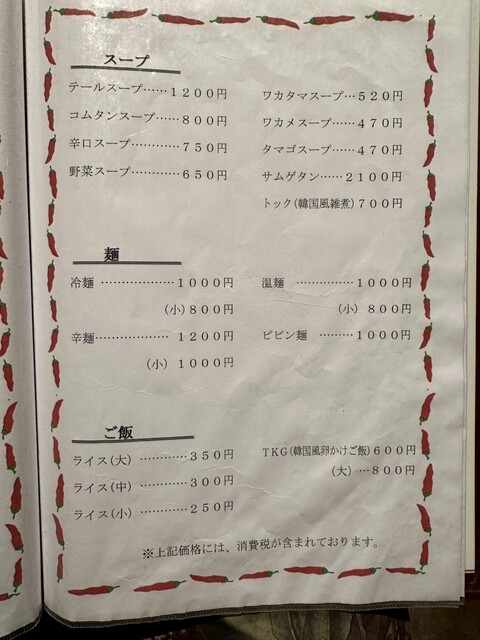 スープ
テールスープ……１２００円
コムタンスープ……８００円
辛口スープ…………７５０円
野菜スープ…………６５０円
ワカタマスープ…５２０円
ワカメスープ……４７０円
タマゴスープ……４７０円
サムゲタン……２１００円
トック(韓国風雑煮)７００円
麺
冷麺 ………………１０００円
(小)８００円
辛麺……………… １２００円
(小) １０００円
温麺 ……………１０００円
(小) ８００円
ビビン麺 ………１０００円
ご飯
ライス(大) …………３５０円
ライス(中) …………３００円
ライス(小) …………２５０円
TKG(韓国風卵かけご飯)６００円
(大) …８００円
※上記価格には、消費税が含まれております。